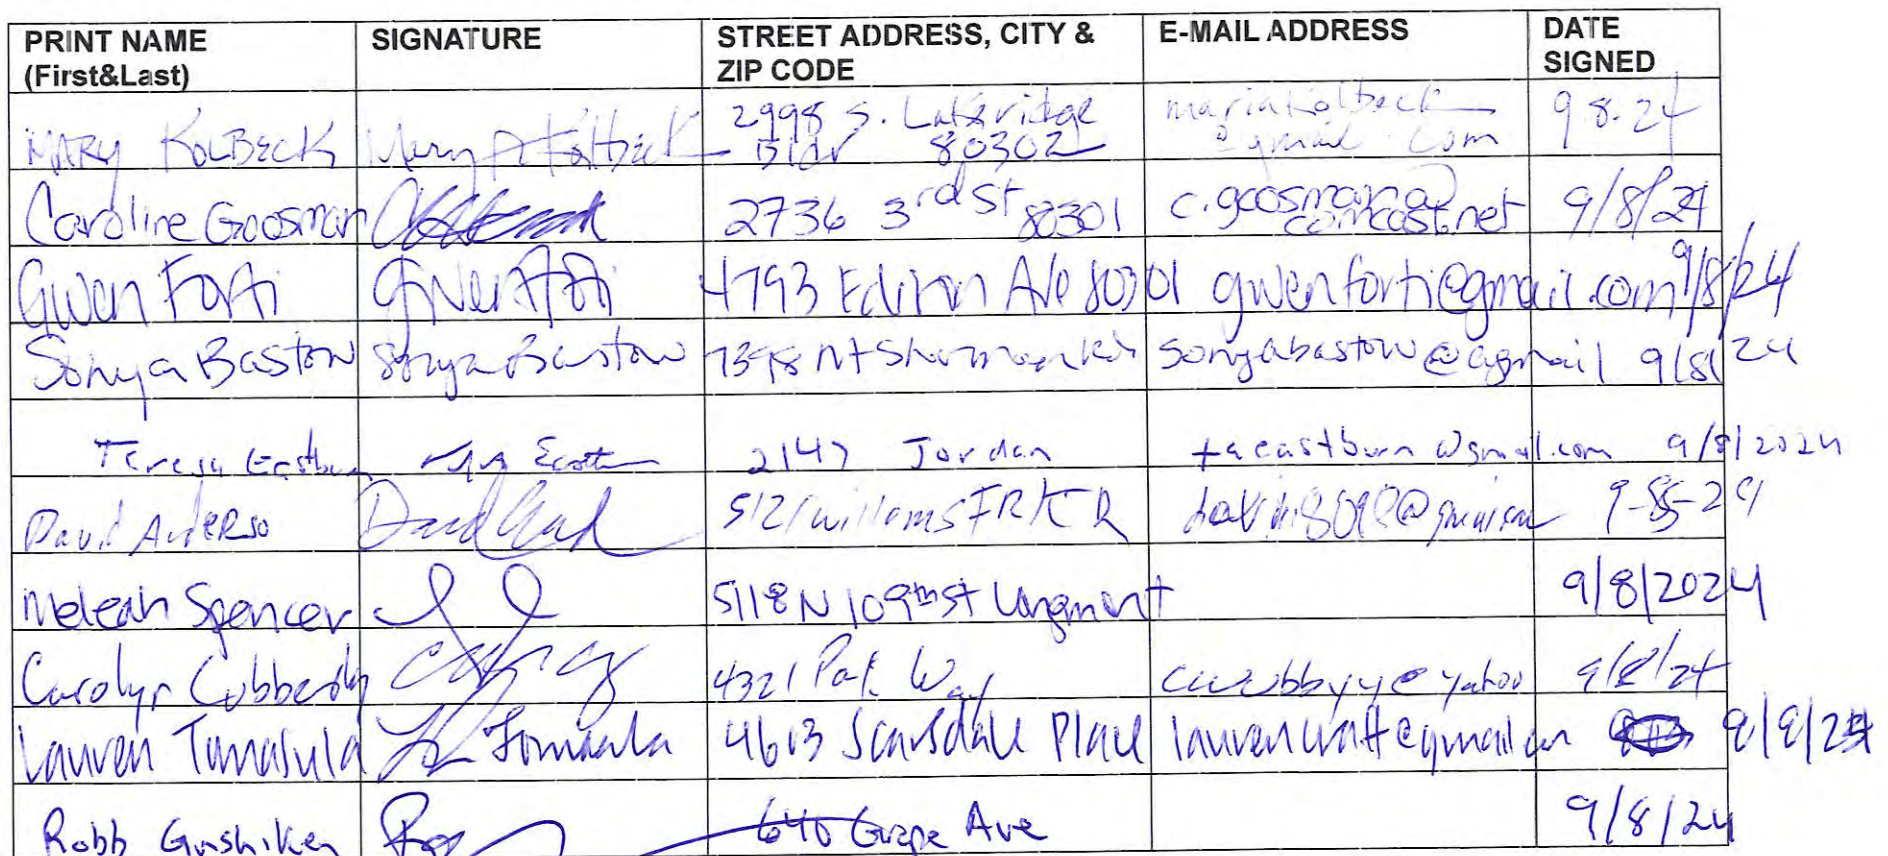 PRINT NAME (First&Last) SIGNATURE STREET ADDRESS, CITY & ZIP CODE E-MAIL ADDRESS DATE SIGNED
MARY KOLBECK Mary A Kolbeck 2998 S. Lakeridge Bldr 80302 mariakolbeck@gmail.com 9.8.24
Caroline Goosman 2736 3rd St 80301 c.goosman@comcast.net 9/8/24
Gwen Forti Gwen Forti 4793 Edison Ave 80301 gwenforti@gmail.com 9/8/24
Sonya Bastow Sonya Bastow 7398 Mt Sherman sonyabastow@gmail 9/8/24
Teresa Eastburn 2147 Jordan taeastburn@gmail.com 9/8/2024
David Anderso David 9-8-24
Meleah Spencer 5118 N 109th St Longmont 9/8/2024
Carolyn Cubberly 4321 Way @yahoo 9/8/24
Lauren Tomasula Tomasula 4603 Scarsdale Place 9/8/24
Robb Gushiken 640 Grape Ave 9/8/24